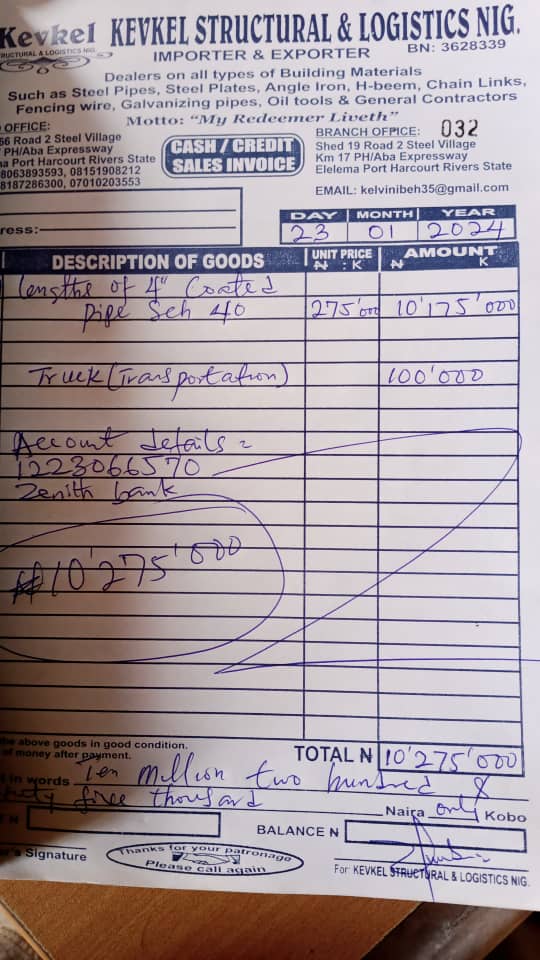 Kevkel KEVKEL STRUCTURAL & LOGISTICS NIG.
RUCTURAL & LOGISTICS NIG.
IMPORTER & EXPORTER BN: 3628339
Dealers on all types of Building Materials
Such as Steel Pipes, Steel Plates, Angle Iron, H-beem, Chain Links,
Fencing wire, Galvanizing pipes, Oil tools & General Contractors
Motto: "My Redeemer Liveth"
OFFICE:
66 Road 2 Steel Village
PH/Aba Expressway
a Port Harcourt Rivers State
8063893593, 08151908212
8187286300, 07010203553
CASH / CREDIT
SALES INVOICE
BRANCH OFPICE: 032
Shed 19 Road 2 Steel Village
Km 17 PH/Aba Expressway
Elelema Port Harcourt Rivers State
EMAIL: kelvinibeh35@gmail.com
ress:
DAY MONTH YEAR
23 01 2024
DESCRIPTION OF GOODS UNIT PRICE AMOUNT
₦ : K ₦ K
lengths of 4" Coated
pipe Sch 40 275'000 10'175'000
Truck (Transportation) 100'000
Account details =
1223066570
Zenith bank
₦10'275'000
he above goods in good condition.
of money after payment.
TOTAL N 10'275'000
in words Ten million two hundred &
five thousand Naira only Kobo
BALANCE ₦
's Signature
Thanks for your patronage
Please call again
For: KEVKEL STRUCTURAL & LOGISTICS NIG.